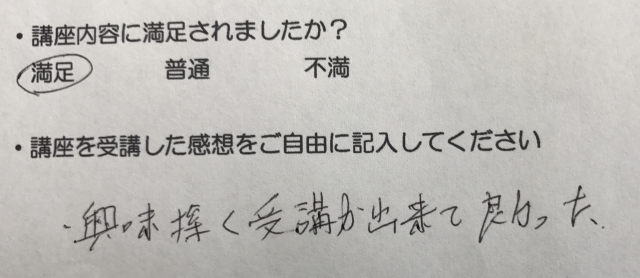 ・講座内容に満足されましたか？
満足 普通 不満
・講座を受講した感想をご自由に記入してください
・興味深く受講が出来て良かった。